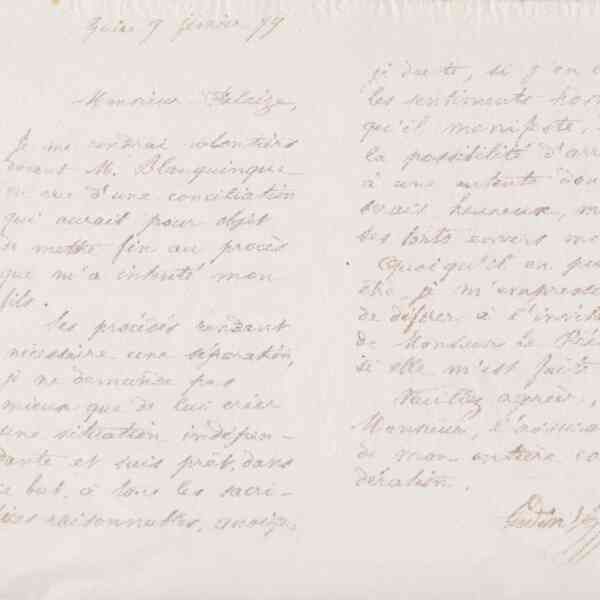 Guise 9 février 79
Monsieur Falaize,
Je me rendrai volontiers
devant M. Blanquinque
en vue d'une conciliation
qui aurait pour objet
de mettre fin au procès
que m'a intenté mon
fils.
Ses procédés rendant
nécessaire une séparation,
je ne demande pas
mieux que de lui créer
une situation indépen-
dante et suis prêt, dans
ce but, à tous les sacri-
fices raisonnables, quoique
je doute, si j'en
les sentiments
qu'il manifeste,
la possibilité d'arr
à une entente dou
serais heureux,
ses torts envers
Quoiqu'il en pu
être je m'empresse
de déférer à l'invit
de Monsieur le Prés
si elle m'est faite
Veuillez agréer,
Monsieur, l'assura
de mon entière co
dération.
Godin